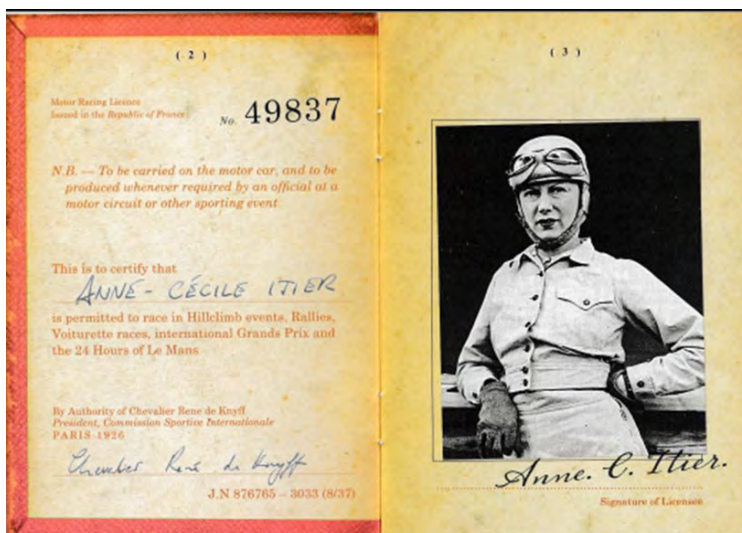 ( 2 )
Motor Racing Licence
Issued in the Republic of France:
No. 49837
N.B. — To be carried on the motor car, and to be
produced whenever required by an official at a
motor circuit or other sporting event
This is to certify that
ANNE-CÉCILE ITIER
is permitted to race in Hillclimb events, Rallies,
Voiturette races, international Grands Prix and
the 24 Hours of Le Mans
By Authority of Chevalier Rene de Knyff
President, Commission Sportice Internationale
PARIS 1926
Chevalier René de Knyff
J.N 876765 – 3033 (8/37)
( 3 )
Anne. C. Itier.
Signature of Licensee